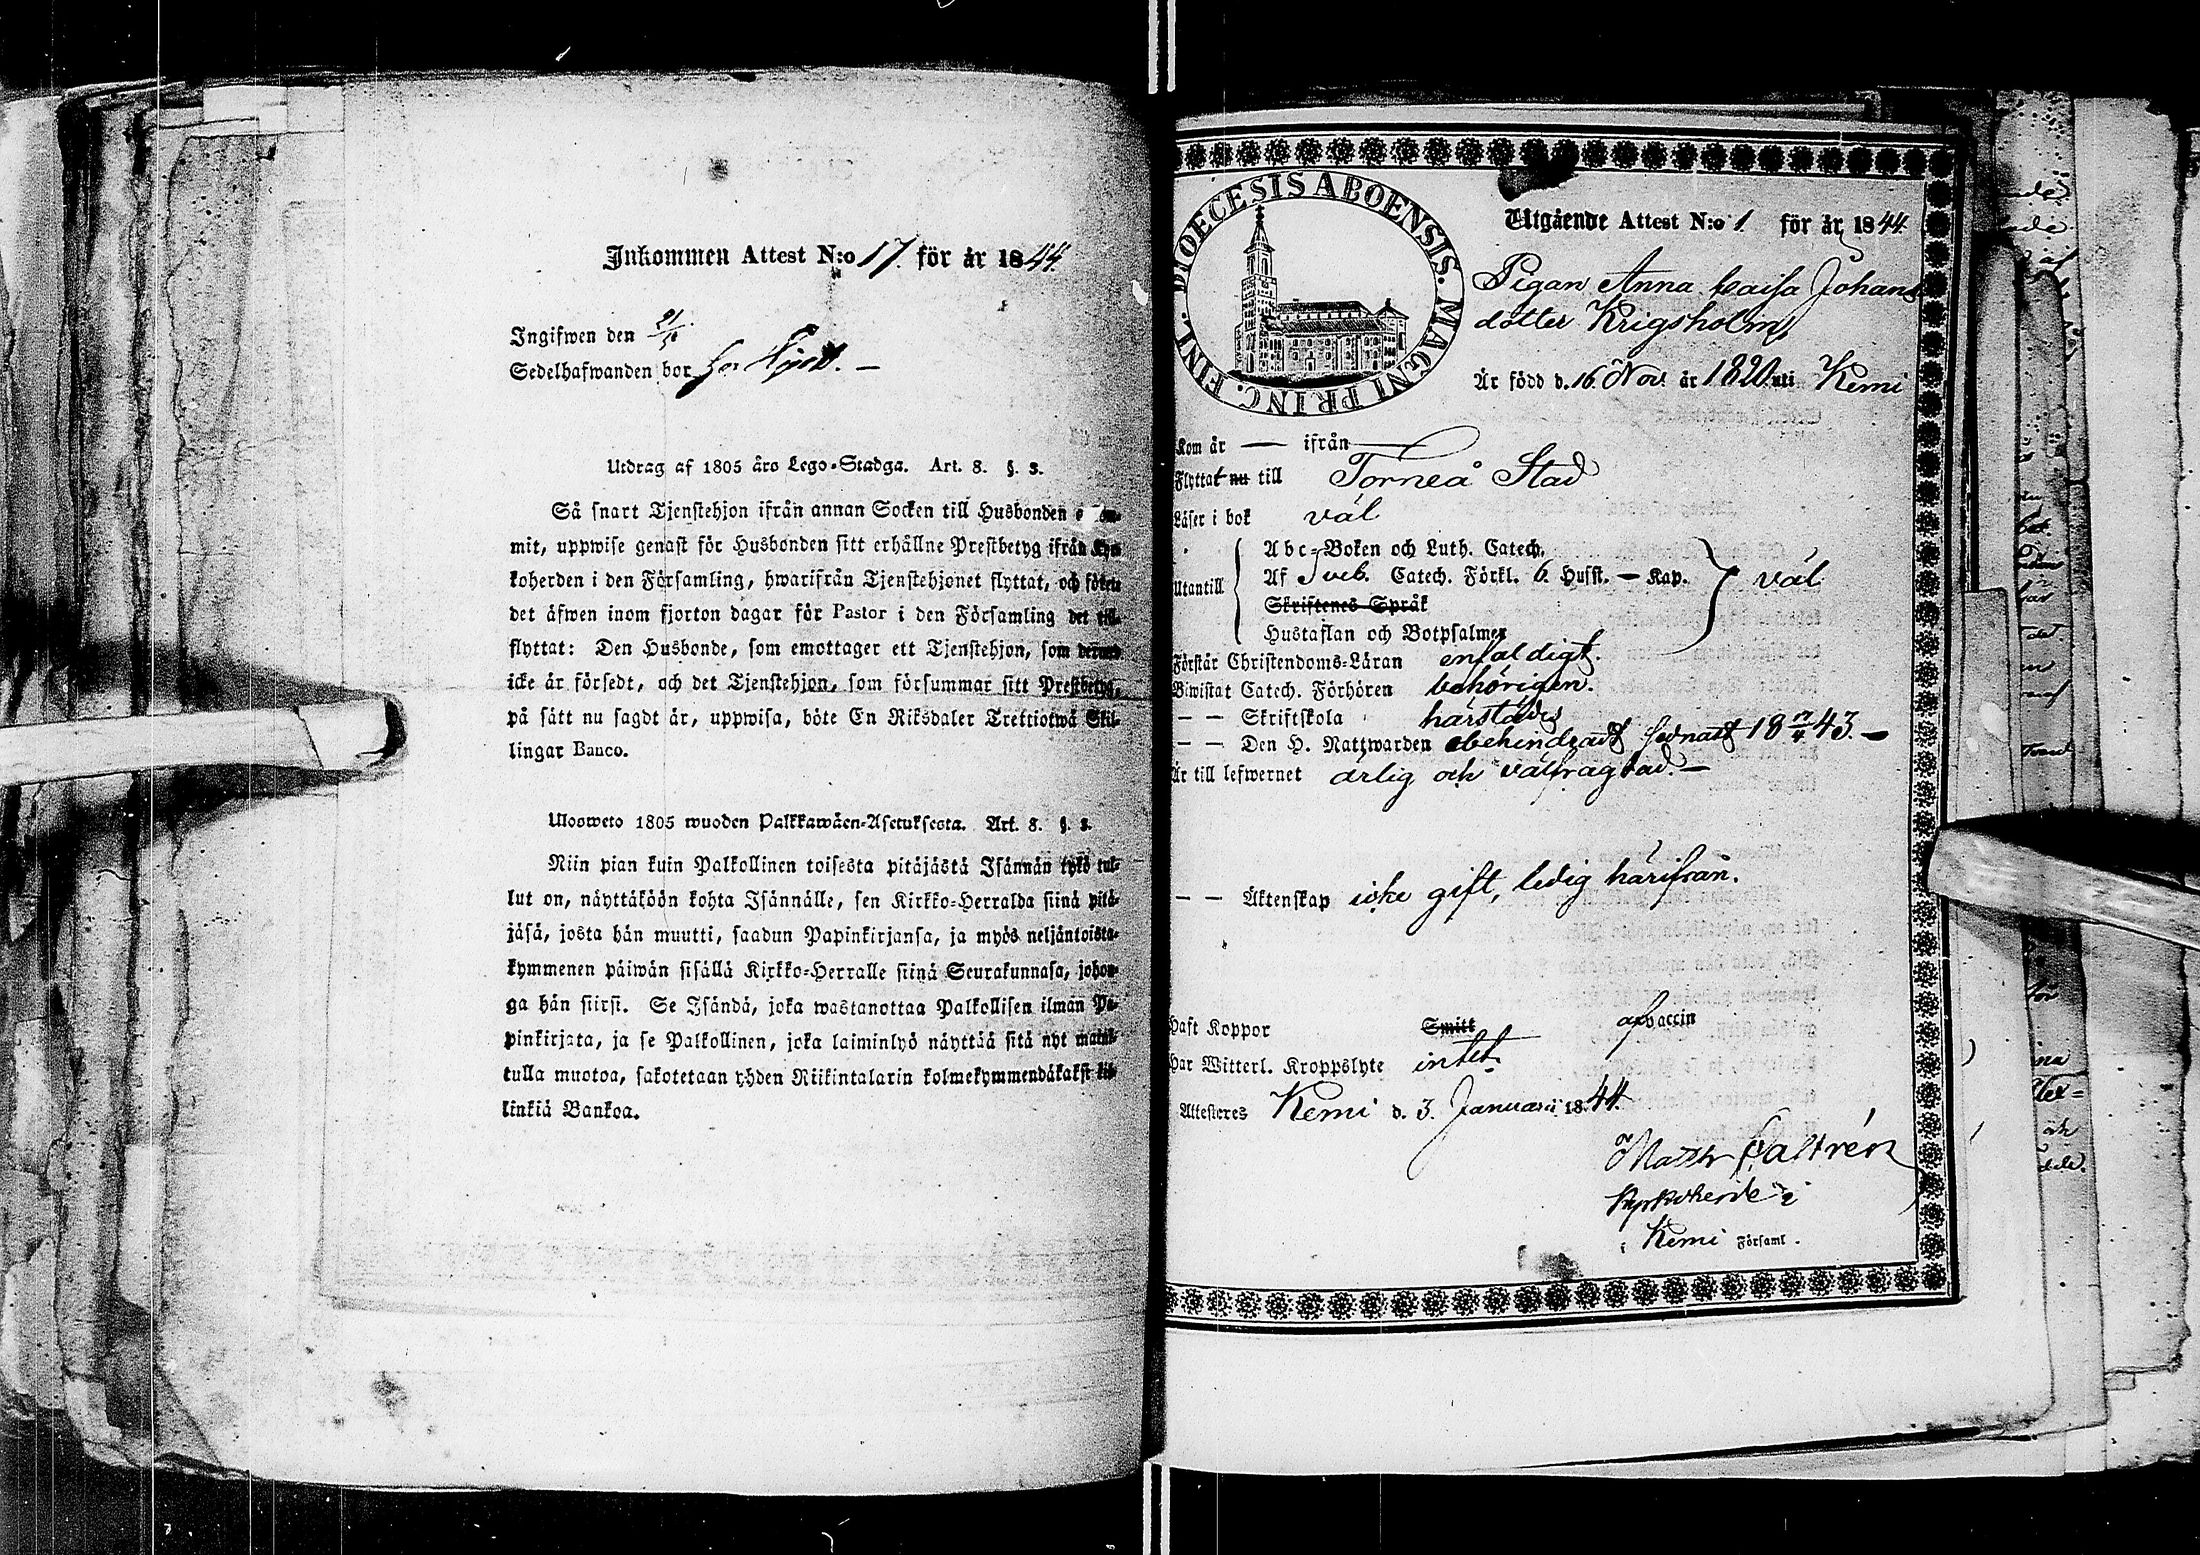 Inkommen Attest N:o 17. för år 1844.
Ingifwen den 21/10
Sedelhafwanden bor hos
Utdrag af 1805 års Lego-Stadga. Art. 8. §. 3.
Så snart Tjenstehjon ifrån annan Socken till Husbonden
mit, uppwise genast för Husbonden sitt erhållne Prestbetyg ifrån Kyr-
koherden i den Församling, hwarifrån Tjenstehjonet flyttat, och söken
det äfwen inom fjorton dagar för Pastor i den Församling det till-
flyttat: Den Husbonde, som emottager ett Tjenstehjon, som dermed
icke är försedt, och det Tjenstehjon, som försummar sitt Prestbetyg,
på sätt nu sagdt är, uppwisa, böte En Riksdaler Trettiotwå Skil-
lingar Banco.
Ulosweto 1805 wuoden Palkkawäen-Asetuksesta. Art. 8. §. 3.
Niin pian kuin Palkollinen toisesta pitäjästä Isännän tykö tul-
lut on, näyttäköön kohta Isännälle, sen Kirkko-Herralda siinä pitä-
jäsä, josta hän muutti, saadun Papinkirjansa, ja myös neljäntoista-
kymmenen päiwän sisällä Kirkko-Herralle siinä Seurakunnasa, johon-
ga hän siirsi. Se Isändä, joka wastanottaa Palkollisen ilman Pa-
pinkirjata, ja se Palkollinen, joka laiminlyö näyttää sitä nyt mainit-
tulla muotoa, sakotetaan yhden Riikintalarin kolmekymmendäkaksi kil-
linkiä Bankoa.
DIOECESIS ABOENSIS. MAGNI PRINC. FINL.
Utgående Attest N:o 1 för år 1844.
Pigan Anna Caisa Johans
dotter Krigsholm
Är född d. 16 Nov. år 1820 uti Kemi
Kom år — ifrån —
Flyttat nu till Torneå Stad
Läser i bok väl
Utantill
Abc-Boken och Luth. Catech.
Af Sveb. Catech. Förkl. 6. Husst. — Kap. väl
Skriftenes Språk
Hustaflan och Botpsalmer
Förstår Christendoms-Läran enfaldigt.
Biwistat Catech. Förhören behörigen.
— — Skriftskola härstädes
— — Den H. Nattwarden obehindradt sednast 18 43. —
Är till lefwernet ärlig och välfrägdad. —
— — Äktenskap icke gift, ledig härifrån.
Haft Koppor Smitt af vaccin
Har Witterl. Kroppslyte intet.
Attesteres Kemi d. 3. Januarii 1844.
Matth Castrén
Kyrkoherde i
i Kemi Församl.